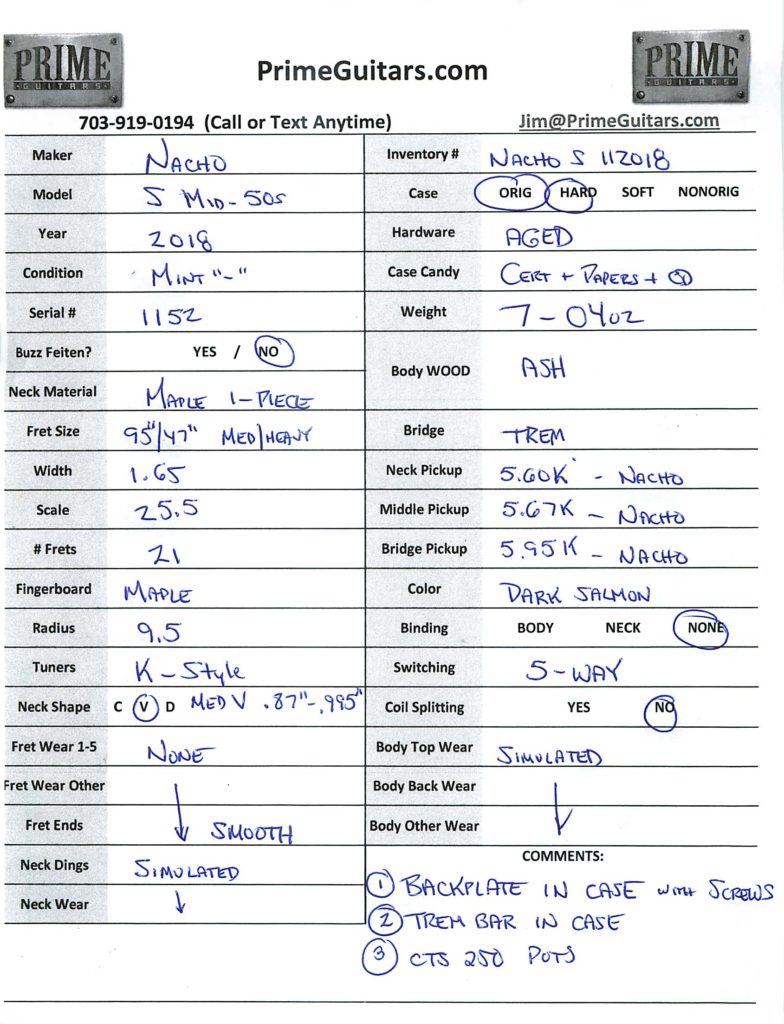 PRIME
GUITARS
PrimeGuitars.com
PRIME
GUITARS
703-919-0194 (Call or Text Anytime)
Jim@PrimeGuitars.com
Maker NACHO
Inventory # NACHO S 112018
Model S MID-50s
Case ORIG HARD SOFT NONORIG
Year 2018
Hardware AGED
Condition MINT "-"
Case Candy CERT + PAPERS +
Serial # 1152
Weight 7-04oz
Buzz Feiten? YES / NO
Body WOOD ASH
Neck Material MAPLE 1-PIECE
Fret Size 95"/47" MED/HEAVY
Bridge TREM
Width 1.65
Neck Pickup 5.60K - NACHO
Scale 25.5
Middle Pickup 5.67K - NACHO
# Frets 21
Bridge Pickup 5.95K - NACHO
Fingerboard MAPLE
Color DARK SALMON
Radius 9.5
Binding BODY NECK NONE
Tuners K-Style
Switching 5-WAY
Neck Shape C V D MED V .87"-.995"
Coil Splitting YES NO
Fret Wear 1-5 NONE
Body Top Wear SIMULATED
Fret Wear Other
Body Back Wear
Fret Ends SMOOTH
Body Other Wear
Neck Dings SIMULATED
Neck Wear
COMMENTS:
1 BACKPLATE IN CASE WITH SCREWS
2 TREM BAR IN CASE
3 CTS 250 POTS